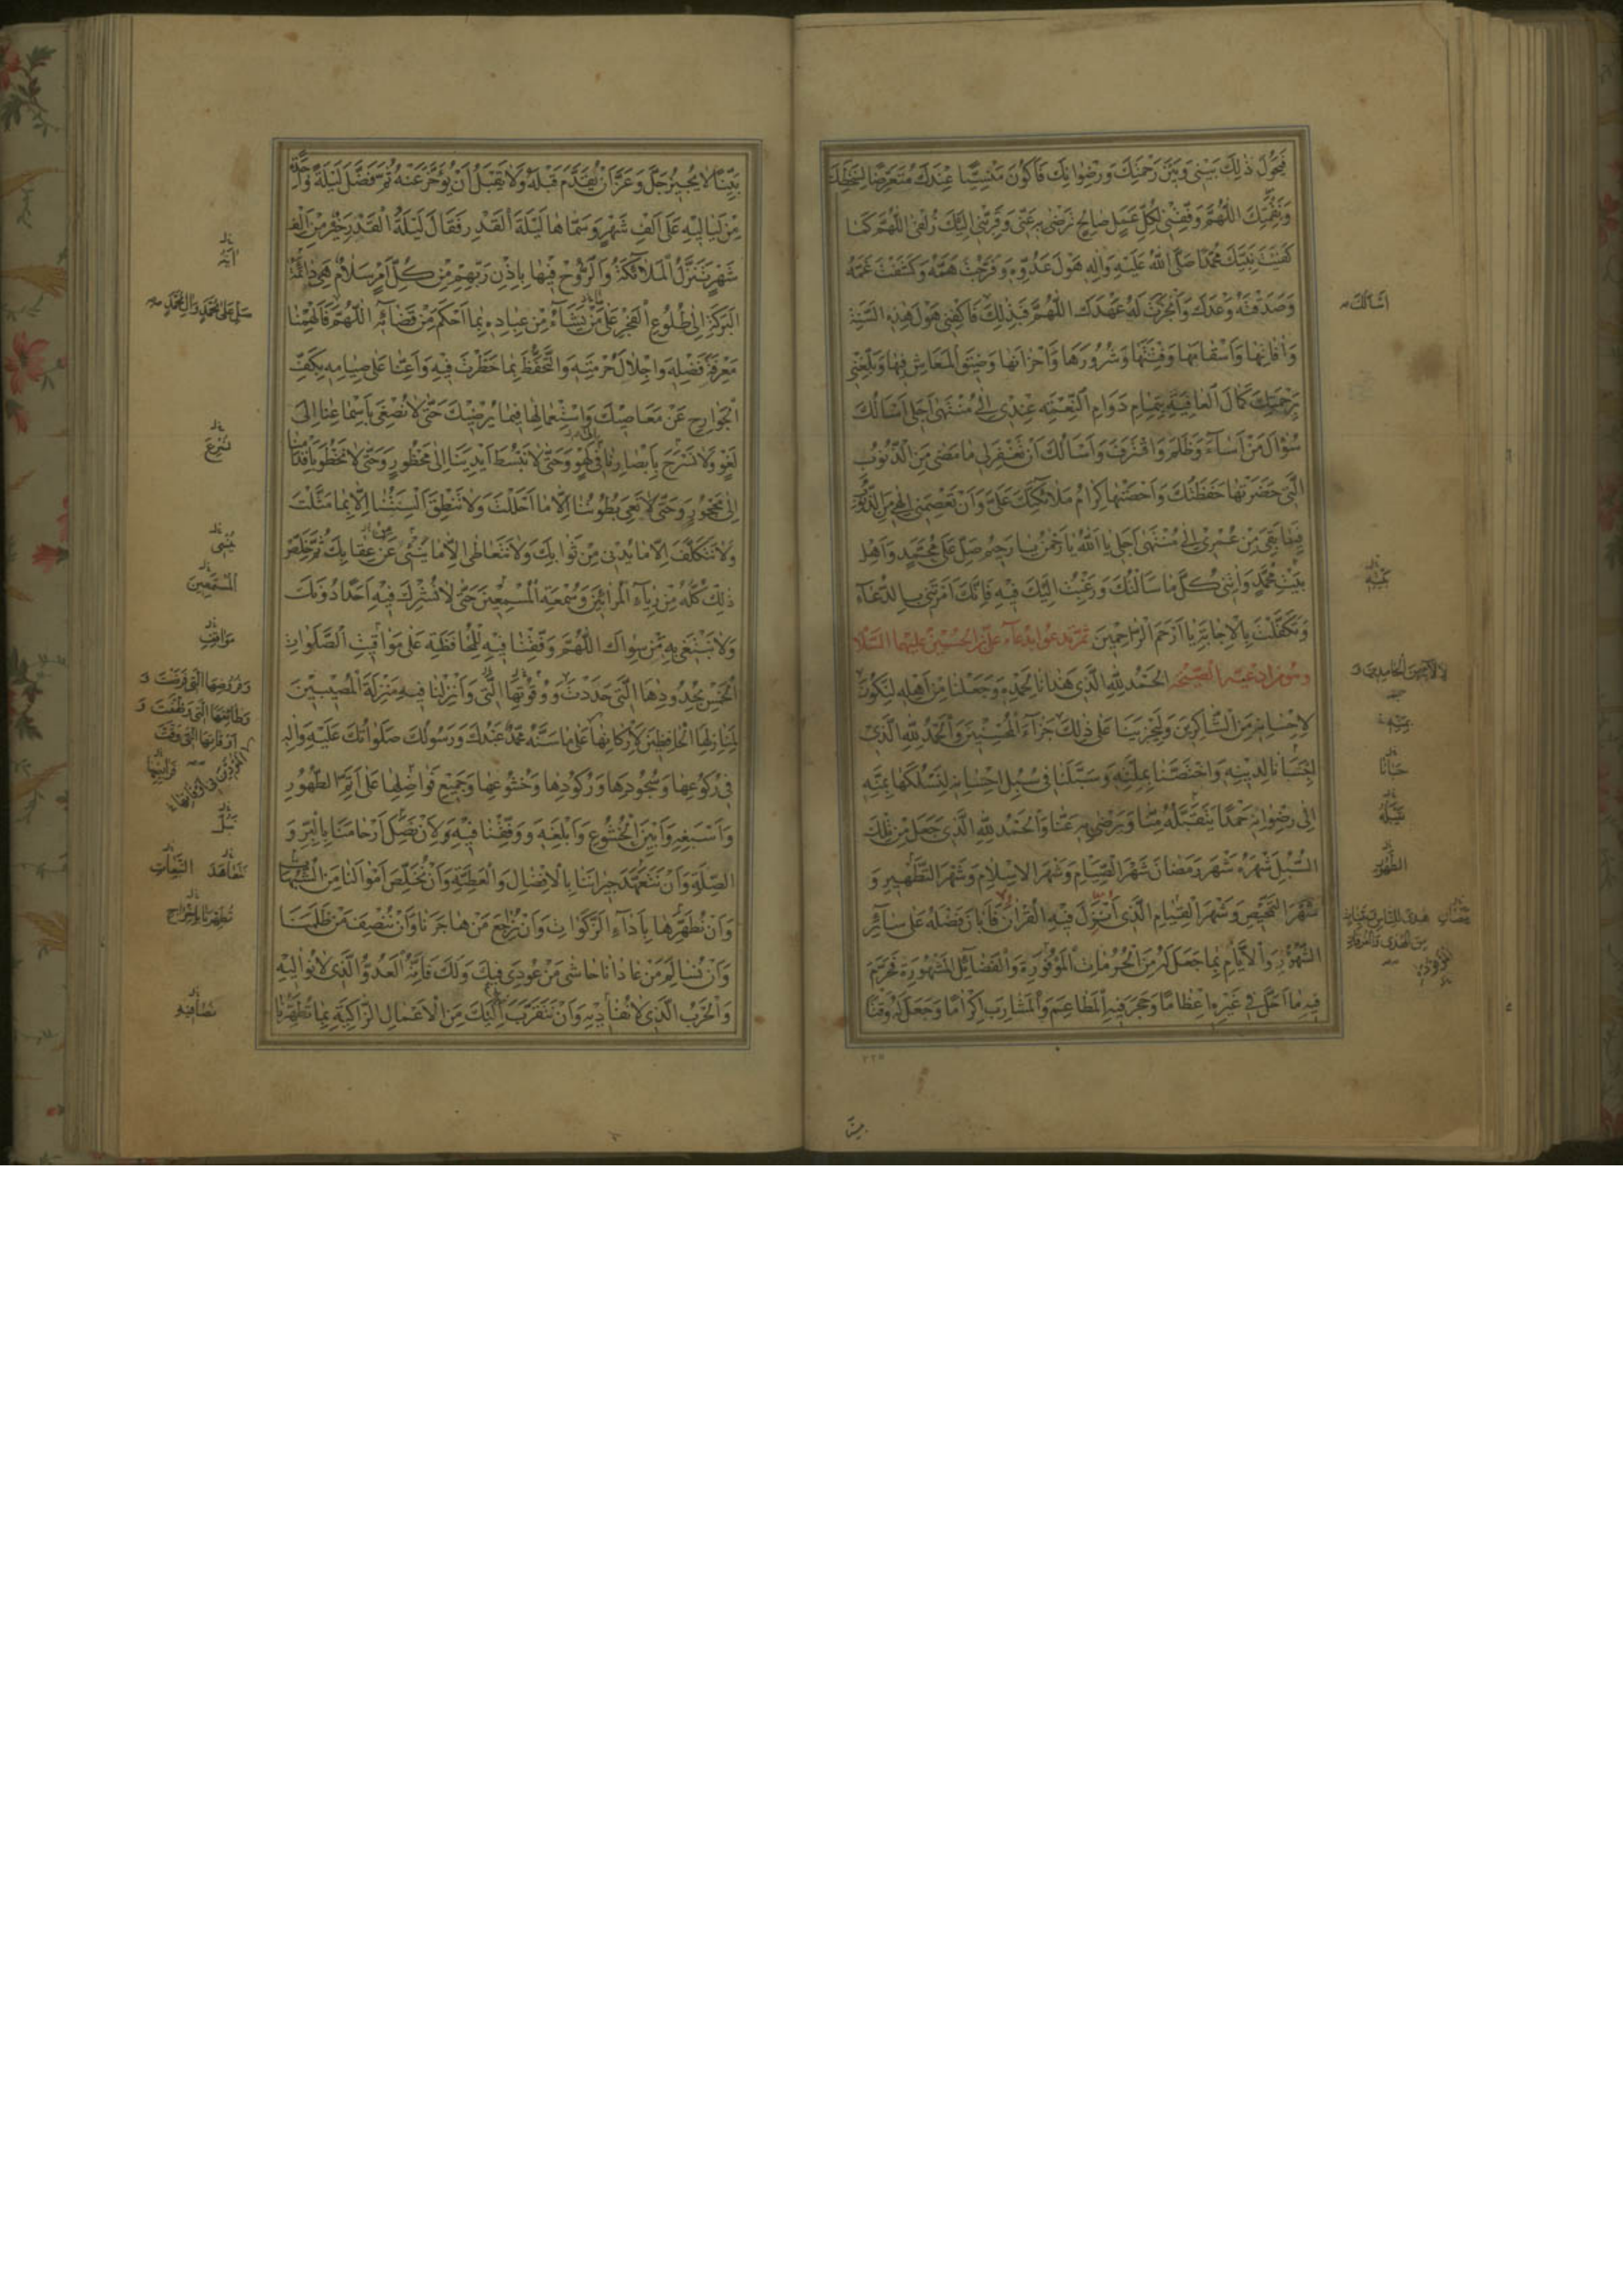 فَيَحُولَ ذٰلِكَ بَيْنِي وَبَيْنَ رَحْمَتِكَ وَرِضْوَانِكَ فَاَكُونَ مَنْسِيًّا عِنْدَكَ مُتَعَرِّضًا لِسَخَطِكَ
وَنِقْمَتِكَ اَللّٰهُمَّ وَفِّقْنِي لِكُلِّ عَمَلٍ صَالِحٍ تَرْضٰى بِهِ عَنِّي وَقَرِّبْنِي اِلَيْكَ زُلْفٰى اَللّٰهُمَّ كَمَا
كَفَيْتَ نَبِيَّكَ مُحَمَّدًا صَلَّى اللّٰهُ عَلَيْهِ وَاٰلِهِ هَوْلَ عَدُوِّهِ وَفَرَّجْتَ هَمَّهُ وَكَشَفْتَ غَمَّهُ
وَصَدَقْتَهُ وَعْدَكَ وَاَنْجَزْتَ لَهُ عَهْدَكَ اَللّٰهُمَّ فَبِذٰلِكَ فَاكْفِنِي هَوْلَ هٰذِهِ السَّنَةِ
وَاٰفَاتِهَا وَاَسْقَامَهَا وَفِتْنَتَهَا وَشُرُورَهَا وَاَحْزَانَهَا وَضِيقَ الْمَعَاشِ فِيهَا وَبَلِّغْنِي
بِرَحْمَتِكَ كَمَالَ الْعَافِيَةِ بِتَمَامِ دَوَامِ النِّعْمَةِ عِنْدِي اِلٰى مُنْتَهٰى اَجَلِي اَسْاَلُكَ
سُؤَالَ مَنْ اَسَاءَ وَظَلَمَ وَاقْتَرَفَ وَاَسْاَلُكَ اَنْ تَغْفِرَ لِي مَا مَضٰى مِنَ الذُّنُوبِ
الَّتِي حَضَرَتْهَا حَفَظَتُكَ وَاَحْصَتْهَا كِرَامُ مَلَائِكَتِكَ عَلَيَّ وَاَنْ تَعْصِمَنِي اِلٰهِي مِنَ الذُّنُوبِ
فِيمَا بَقِيَ مِنْ عُمْرِي اِلٰى مُنْتَهٰى اَجَلِي يَا اَللّٰهُ يَا رَحْمٰنُ يَا رَحِيمُ صَلِّ عَلٰى مُحَمَّدٍ وَاَهْلِ
بَيْتِ مُحَمَّدٍ وَاٰتِنِي كُلَّ مَا سَاَلْتُكَ وَرَغِبْتُ اِلَيْكَ فِيهِ فَاِنَّكَ اَمَرْتَنِي بِالدُّعَاءِ
وَتَكَفَّلْتَ بِالْاِجَابَةِ يَا اَرْحَمَ الرَّاحِمِينَ ثُمَّ تَدْعُو بِدُعَاءِ عَلِيِّ بْنِ الْحُسَيْنِ عَلَيْهِمَا السَّلَامُ
وَهُوَ مِنْ اَدْعِيَةِ الصَّحِيفَةِ اَلْحَمْدُ لِلّٰهِ الَّذِي هَدَانَا لِحَمْدِهِ وَجَعَلَنَا مِنْ اَهْلِهِ لِنَكُونَ
لِاِحْسَانِهِ مِنَ الشَّاكِرِينَ وَلِيَجْزِيَنَا عَلٰى ذٰلِكَ جَزَاءَ الْمُحْسِنِينَ وَالْحَمْدُ لِلّٰهِ الَّذِي
وَاخْتَصَّنَا بِمِلَّتِهِ وَسَبَّلَنَا فِي سُبُلِ اِحْسَانِهِ لِنَسْلُكَهَا بِمَنِّهِ
اِلٰى رِضْوَانِهِ حَمْدًا يَتَقَبَّلُهُ مِنَّا وَيَرْضٰى بِهِ عَنَّا وَالْحَمْدُ لِلّٰهِ الَّذِي جَعَلَ مِنْ تِلْكَ
السُّبُلِ شَهْرَهُ شَهْرَ رَمَضَانَ شَهْرَ الصِّيَامِ وَشَهْرَ الْاِسْلَامِ وَشَهْرَ التَّطْهِيرِ وَ
شَهْرَ التَّمْحِيصِ وَشَهْرَ الْقِيَامِ الَّذِي اُنْزِلَ فِيهِ الْقُرْاٰنُ فَاَبَانَ فَضْلَهُ عَلٰى سَائِرِ
الشُّهُورِ وَالْاَيَّامِ بِمَا جَعَلَ لَهُ مِنَ الْحُرُمَاتِ الْمَوْفُورَةِ وَالْفَضَائِلِ الْمَشْهُورَةِ فَحَرَّمَ
فِيهِ مَا اَحَلَّ فِي غَيْرِهِ اِعْظَامًا وَحَجَرَ فِيهِ الْمَطَاعِمَ وَالْمَشَارِبَ اِكْرَامًا وَجَعَلَ لَهُ وَقْتًا
اَسْاَلُكَ
حَبَانَا
الطَّهُورِ
٢٢٥
بَيِّنًا لَا يُجِيزُ جَلَّ وَعَزَّ اَنْ يُقَدَّمَ قَبْلَهُ وَلَا يَقْبَلُ اَنْ يُؤَخَّرَ عَنْهُ ثُمَّ فَضَّلَ لَيْلَةً وَاحِدَةً
مِنْ لَيَالِيهِ عَلٰى اَلْفِ شَهْرٍ وَسَمَّاهَا لَيْلَةَ الْقَدْرِ فَقَالَ لَيْلَةُ الْقَدْرِ خَيْرٌ مِنْ اَلْفِ
شَهْرٍ تَنَزَّلُ الْمَلَائِكَةُ وَالرُّوحُ فِيهَا بِاِذْنِ رَبِّهِمْ مِنْ كُلِّ اَمْرٍ سَلَامٌ هِيَ دَائِمَةُ
الْبَرَكَةِ اِلٰى طُلُوعِ الْفَجْرِ عَلٰى مَنْ يَشَاءُ مِنْ عِبَادِهِ بِمَا اَحْكَمَ مِنْ قَضَائِهِ اَللّٰهُمَّ فَاَلْهِمْنَا
مَعْرِفَةَ فَضْلِهِ وَاِجْلَالَ حُرْمَتِهِ وَالتَّحَفُّظَ بِمَا حَظَرْتَ فِيهِ وَاَعِنَّا عَلٰى صِيَامِهِ بِكَفِّ
الْجَوَارِحِ عَنْ مَعَاصِيكَ وَاسْتِعْمَالِهَا فِيمَا يُرْضِيكَ حَتّٰى لَا نُصْغِيَ بِاَسْمَاعِنَا اِلٰى
لَغْوٍ وَلَا نَسْرَحَ بِاَبْصَارِنَا فِي لَهْوٍ وَحَتّٰى لَا نَبْسُطَ اَيْدِيَنَا اِلٰى مَحْظُورٍ وَحَتّٰى لَا نَخْطُوَ بِاَقْدَامِنَا
اِلٰى مَحْجُورٍ وَحَتّٰى لَا تَعِيَ بُطُونُنَا اِلَّا مَا اَحْلَلْتَ وَلَا تَنْطِقَ اَلْسِنَتُنَا اِلَّا بِمَا مَثَّلْتَ
وَلَا نَتَكَلَّفَ اِلَّا مَا يُدْنِي مِنْ ثَوَابِكَ وَلَا نَتَعَاطٰى اِلَّا مَا يُنْئِي عَنْ عِقَابِكَ ثُمَّ خَلِّصْ
ذٰلِكَ كُلَّهُ مِنْ رِيَاءِ الْمُرَائِينَ وَسُمْعَةِ الْمُسْمِعِينَ حَتّٰى لَا نُشْرِكَ فِيهِ اَحَدًا دُونَكَ
وَلَا نَبْتَغِيَ بِهِ مَنْ سِوَاكَ اَللّٰهُمَّ وَقِّفْنَا فِيهِ لِلْمُحَافَظَةِ عَلٰى مَوَاقِيتِ الصَّلَوَاتِ
الْخَمْسِ بِحُدُودِهَا الَّتِي حَدَدْتَ وَوُقُوتِهَا الَّتِي وَاَنْزِلْنَا فِيهِ مَنْزِلَةَ الْمُصِيبِينَ
لِمَنَازِلِهَا الْحَافِظِينَ لِاَرْكَانِهَا عَلٰى مَا سَنَّهُ مُحَمَّدٌ عَبْدُكَ وَرَسُولُكَ صَلَوَاتُكَ عَلَيْهِ وَاٰلِهِ
فِي رُكُوعِهَا وَسُجُودِهَا وَرُكُودِهَا وَخُشُوعِهَا وَجَمِيعِ فَوَاضِلِهَا عَلٰى اَتَمِّ الطَّهُورِ
وَاَسْبَغِهِ وَاَبْيَنِ الْخُشُوعِ وَاَبْلَغِهِ وَوَفِّقْنَا فِيهِ وَلِاَنْ نَصِلَ اَرْحَامَنَا بِالْبِرِّ وَ
الصِّلَةِ وَاَنْ نَتَعَهَّدَ جِيرَانَنَا بِالْاِفْضَالِ وَالْعَطِيَّةِ وَاَنْ نُخَلِّصَ اَمْوَالَنَا مِنَ الشُّبُهَاتِ
وَاَنْ نُطَهِّرَهَا بِاَدَاءِ الزَّكَوَاتِ وَاَنْ نُرَاجِعَ مَنْ هَاجَرَنَا وَاَنْ نُنْصِفَ مَنْ ظَلَمَنَا
وَاَنْ نُسَالِمَ مَنْ عَادَانَا حَاشٰى مَنْ عُودِيَ فِيكَ وَلَكَ فَاِنَّهُ الْعَدُوُّ الَّذِي لَا نُوَالِيهِ
وَالْحِزْبُ الَّذِي لَا نُصَافِيهِ وَاَنْ نَتَقَرَّبَ اِلَيْكَ مِنَ الْاَعْمَالِ الزَّاكِيَةِ بِمَا تُطَهِّرُنَا
صَلِّ عَلٰى مُحَمَّدٍ وَاٰلِ مُحَمَّدٍ
نُسْرِعَ
وَفُرُوضِهَا الَّتِي فَرَضْتَ وَ
وَظَائِفِهَا الَّتِي وَظَّفْتَ وَ
اَوْقَاتِهَا الَّتِي وَقَّتَّ
نَتَعَاهَدَ التَّبِعَاتِ
نُصَافِيهِ